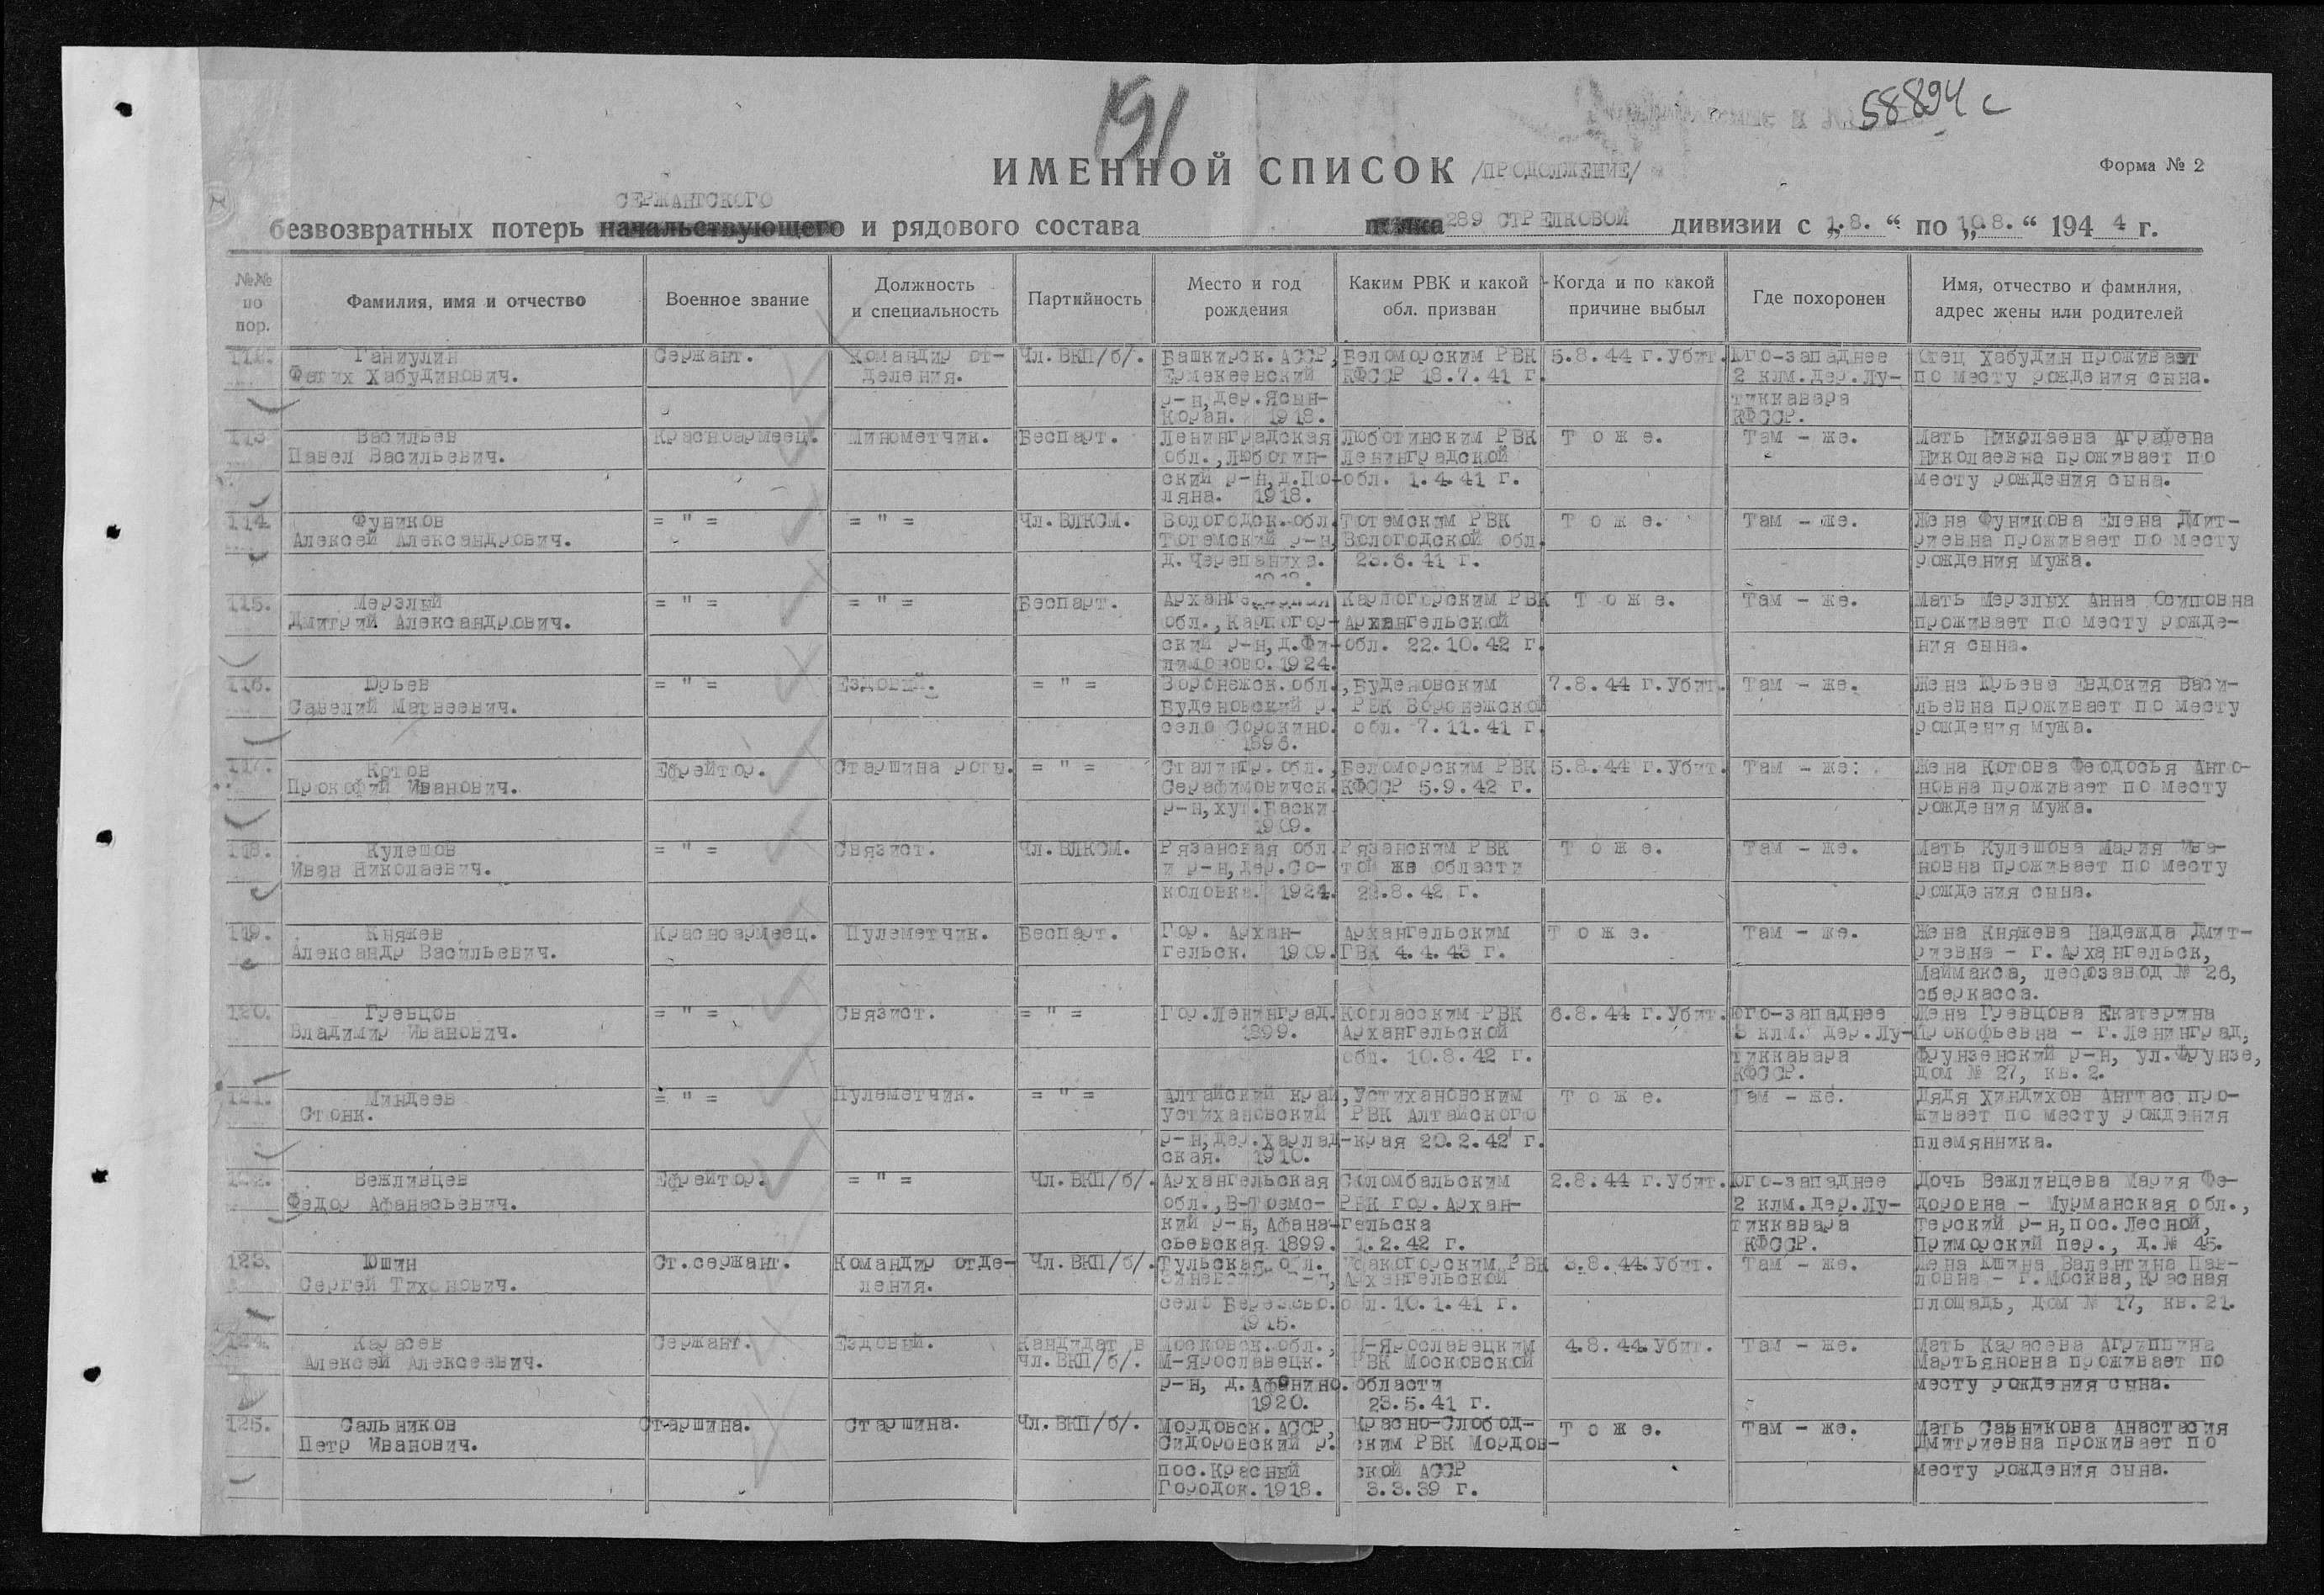 191
58894 с
ИМЕННОЙ СПИСОК /ПРОДОЛЖЕНИЕ/
Форма № 2
СЕРЖАНТСКОГО
безвозвратных потерь начальствующего и рядового состава полка 289 СТРЕЛКОВОЙ дивизии с „1.8. “ по „10.8. “ 1944 г.
№№ по пор.
Фамилия, имя и отчество
Военное звание
Должность и специальность
Партийность
Место и год рождения
Каким РВК и какой обл. призван
Когда и по какой причине выбыл
Где похоронен
Имя, отчество и фамилия, адрес жены или родителей
112. Ганиулин Сержант. Командир от- Чл.ВКП/б/. Башкирск.АССР, Беломорским РВК 5.8.44 г.Убит. Юго-западнее Отец Хабудин проживает
Фатих Хабудинович. деления. Ермекеевский КФССР 18.7.41 г. 2 клм.дер.Лу- по месту рождения сына.
р-н,дер.Ясын- тиккавара
Коран. 1918. КФССР.
113 Васильев Красноармеец. Минометчик. Беспарт. Ленинградская Люботинским РВК Т о ж е. Там - же. Мать Николаева Аграфена
Павел Васильевич. обл.,Люботин- Ленинградской Николаевна проживает по
ский р-н,д.По- обл. 1.4.41 г. месту рождения сына.
ляна. 1918.
114. Фуников = " = = " = Чл.ВЛКСМ. Вологодск.обл. Тотемским РВК Т о ж е. Там - же. Жена Фуникова Елена Дмит-
Алексей Александрович. Тотемский р-н, Вологодской обл. риевна проживает по месту
д.Черепаниха. 23.6.41 г. рождения мужа.
115. Мерзлый = " = = " = Беспарт. Карпогорским РВК Т о ж е. Там - же. Мать Мерзлых Анна Осиповна
Дмитрий Александрович. обл.,Карпогор- Архангельской проживает по месту рожде-
ский р-н,д.Фи- обл. 22.10.42 г. ния сына.
лимоново.1924.
116. Юрьев = " = Ездовый. = " = Воронежск.обл., Буденовским 7.8.44 г.Убит. Там - же. Жена Юрьева Евдокия Васи-
Савелий Матвеевич. Буденовский р. РВК Воронежской льевна проживает по месту
село Сорокино. обл. 7.11.41 г. рождения мужа.
1896.
117. Котов Ефрейтор. Старшина роты. = " = Сталингр.обл., Беломорским РВК 5.8.44 г.Убит. Там - же. Жена Котова Феодосья Анто-
Прокофий Иванович. Серафимовичск. КФССР 5.9.42 г. новна проживает по месту
р-н,хут.Баски рождения мужа.
1909.
118. Кулешов = " = Связист. Чл.ВЛКСМ. Рязанская обл. Рязанским РВК Т о ж е. Там - же. Мать Кулешова Мария Ива-
Иван Николаевич. и р-н,дер.Со- той же области новна проживает по месту
коловка. 1924. 22.8.42 г. рождения сына.
119. Княжев Красноармеец. Пулеметчик. Беспарт. Гор. Архан- Архангельским Т о ж е. Там - же. Жена Княжева Надежда Дмит-
Александр Васильевич. гельск. 1909. ГВК 4.4.43 г. риевна - г.Архангельск,
Маймакса, лесозавод № 26,
сберкасса.
120. Гревцов = " = Связист. = " = Гор.Ленинград. Котласским РВК 6.8.44 г.Убит. Юго-западнее Жена Гревцова Екатерина
Владимир Иванович. 1899. Архангельской 3 клм. дер.Лу- Прокофьевна - г.Ленинград,
обл. 10.8.42 г. тиккавара Фрунзенский р-н, ул.Фрунзе,
КФССР. дом № 27, кв.2.
121. Миндеев = " = Пулеметчик. = " = Алтайский край, Устихановским Т о ж е. Там - же. Дядя Хиндихов Ангтас про-
Стонк. Устихановский РВК Алтайского живает по месту рождения
р-н,дер.Харлад- края 20.2.42 г. племянника.
ская. 1910.
122. Вежливцев Ефрейтор. = " = Чл.ВКП/б/. Архангельская Соломбальским 2.8.44 г.Убит. Юго-западнее Дочь Вежливцева Мария Фе-
Федор Афанасьевич. обл.,В-Тоемс- РВК гор.Архан- 2 клм.дер.Лу- доровна - Мурманская обл.,
кий р-н,Афана- гельска тиккавара Терский р-н,пос.Лесной,
сьевская 1899. 1.2.42 г. КФССР. Приморский пер., д.№ 45.
123. Юшин Ст.сержант. Командир отде- Чл.ВКП/б/. Тульская обл. РВК 3.8.44.Убит. Там - же. Жена Юшина Валентина Пав-
Сергей Тихонович. ления. Архангельской ловна - г.Москва,Красная
село обл.10.1.41 г. площадь, дом № 17, кв.21.
1915.
124. Карасев Сержант. Ездовый. Кандидат в Московск.обл., М-Ярославецким 4.8.44.Убит. Там - же. Мать Карасева Агрипина
Алексей Алексеевич. чл.ВКП/б/. М-Ярославецк. РВК Московской Мартьяновна проживает по
р-н, д.Афонино. области месту рождения сына.
1920. 23.5.41 г.
125. Сальников Старшина. Старшина. Чл.ВКП/б/. Мордовск.АССР, Красно-Слобод- Т о ж е. Там - же. Мать Савникова Анастасия
Петр Иванович. Сидоровский р. ским РВК Мордов- Дмитриевна проживает по
пос.Красный ской АССР месту рождения сына.
Городок.1918. 3.3.39 г.